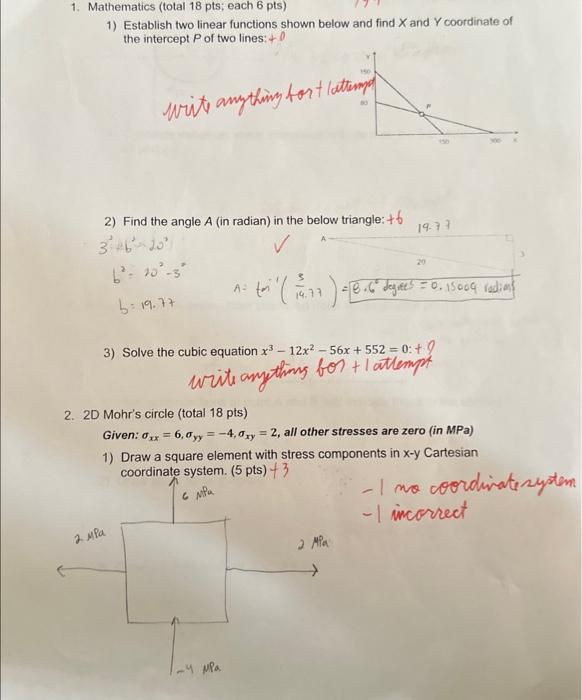 1. Mathematics (total 18 pts; each 6 pts)
1) Establish two linear functions shown below and find X and Y coordinate of
the intercept P of two lines: +0
write anything for +1 attempt
Y
150
80
P
150
300
X
2) Find the angle A (in radian) in the below triangle: +6
19.77
3² + b² = 20²
✓
A
b² = 20² - 3²
20
3
A = tan⁻¹ (3/19.77) = 8.6° degrees = 0.15009 radians
b = 19.77
3) Solve the cubic equation x³ – 12x² – 56x + 552 = 0: +0
write anything for +1 attempt
2. 2D Mohr's circle (total 18 pts)
Given: σxx = 6, σyy = –4, σxy = 2, all other stresses are zero (in MPa)
1) Draw a square element with stress components in x-y Cartesian
coordinate system. (5 pts) +3
-1 no coordinate system
-1 incorrect
6 MPa
2 MPa
2 MPa
-4 MPa